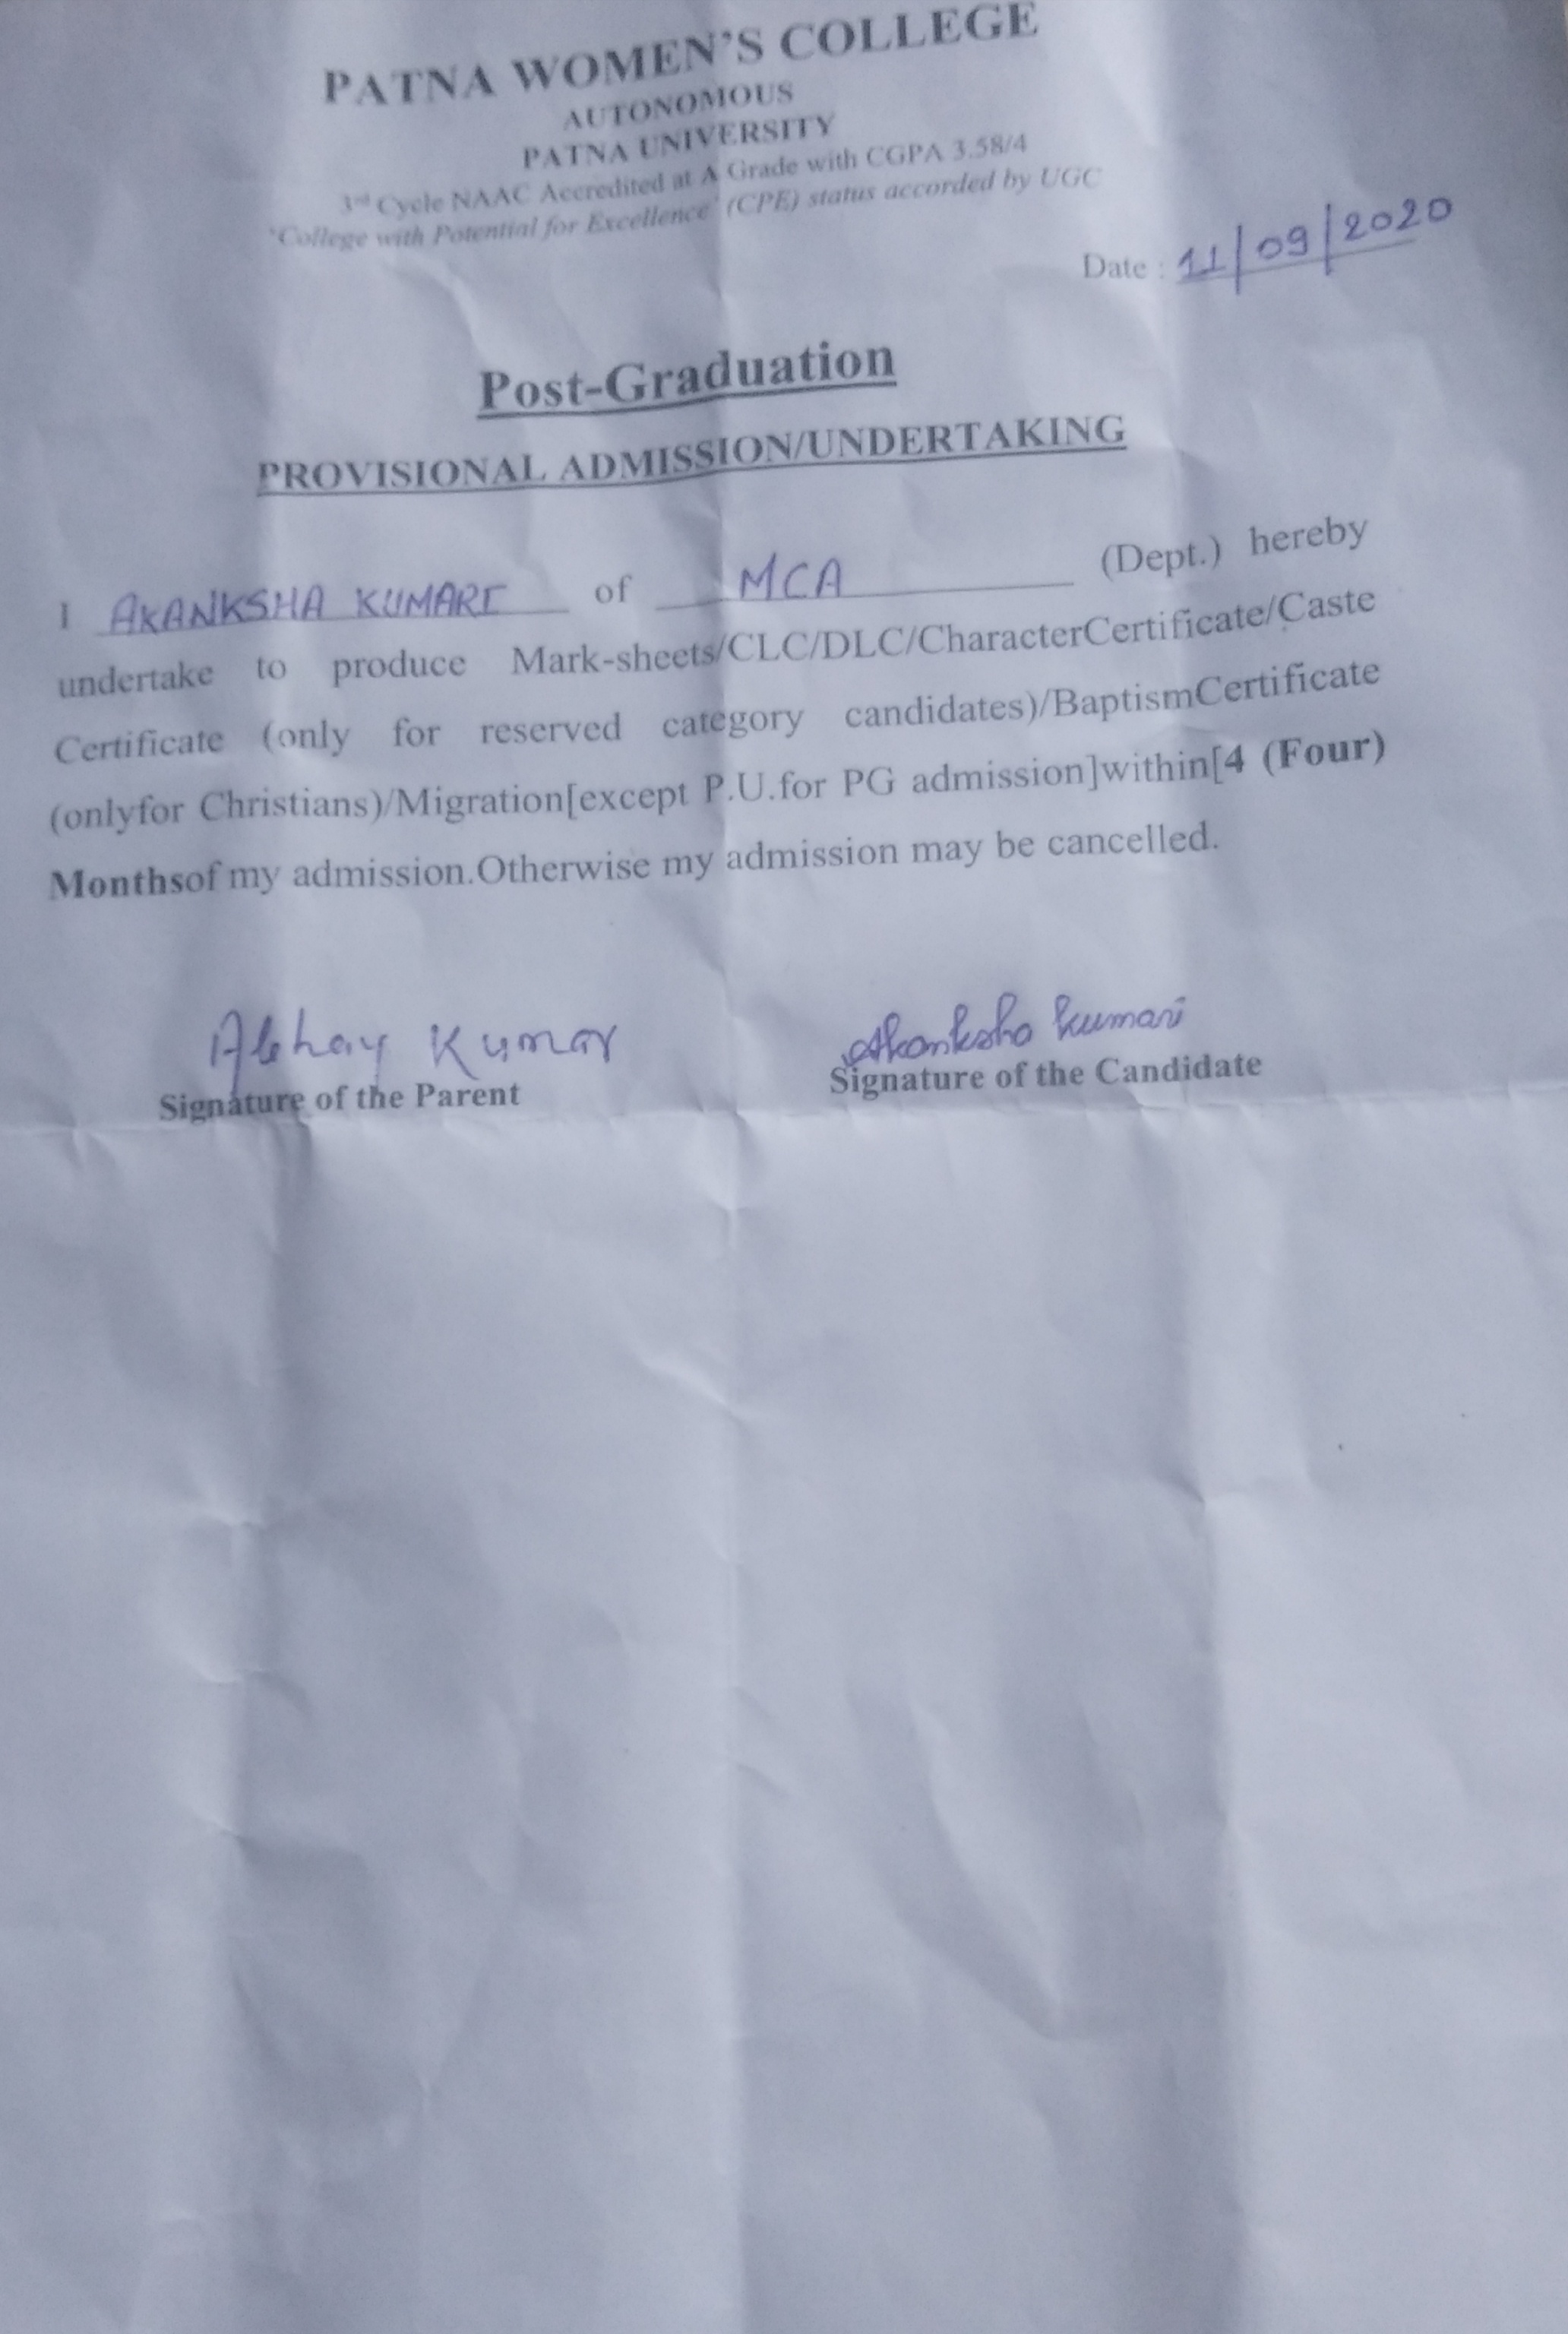 PATNA WOMEN'S COLLEGE
AUTONOMOUS
PATNA UNIVERSITY
3rd Cycle NAAC Accredited at A Grade with CGPA 3.58/4
'College with Potential for Excellence' (CPE) status accorded by UGC
Date : 11/09/2020
Post-Graduation
PROVISIONAL ADMISSION/UNDERTAKING
I AKANKSHA KUMARI of MCA (Dept.) hereby
undertake to produce Mark-sheets/CLC/DLC/CharacterCertificate/Caste
Certificate (only for reserved category candidates)/BaptismCertificate
(onlyfor Christians)/Migration[except P.U.for PG admission]within[4 (Four)
Monthsof my admission.Otherwise my admission may be cancelled.
Abhay Kumar Akanksha Kumari
Signature of the Parent Signature of the Candidate